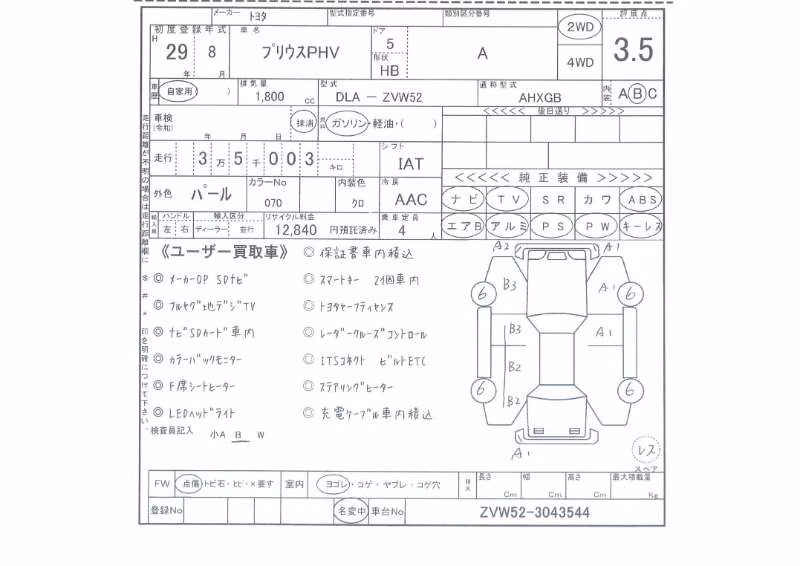 メーカー トヨタ 型式指定番号 類別区分番号 評価点
初度登録年式 車名 ドア 2WD
H 29 8 プリウスPHV 5 A 4WD 3.5
年 月 形状 HB
車歴 自家用 ) 排気量 1,800 cc 型式 DLA - ZVW52 通称型式 AHXGB 内装 A B C
車検 (令和) 年 月 日 抹消 ガソリン・軽油・( ) <<<<< 後日送り >>>>>
走行 3万5千003 キロ シフト IAT
<<<<< 純正装備 >>>>>
外色 パール カラーNo 070 内装色 クロ 冷房 AAC ナビ TV SR カワ ABS
輸入車 ハンドル 左 右 輸入区分 ディーラー・並行 リサイクル料金 12,840 円預託済み 乗車定員 4 人 エアB アルミ PS PW キーレス
《ユーザー買取車》 ◎ 保証書車内積込
◎ メーカーOP SDナビ ◎ スマートキー 2個車内
◎ フルセグ地デジTV ◎ トヨタセーフティセンス
◎ ナビSDカード車内 ◎ レーダークルーズコントロール
◎ カラーバックモニター ◎ ITSコネクト ビルトETC
◎ F席シートヒーター ◎ ステアリングヒーター
◎ LEDヘッドライト ◎ 充電ケーブル車内積込
検査員記入 小A B W
走行距離が不明の場合は走行距離欄に * # $ 印を明確につけて下さい。
A2 A1
6 B3 A1 6
B3 A1
B2
6 B2 6
A1
レス
スペア
FW 点傷・トビ石・ヒビ・×要す 室内 ヨゴレ・コゲ・ヤブレ・コゲ穴 長さ Cm 幅 Cm 高さ Cm 最大積載量 Kg
登録No 名変中 車台No ZVW52-3043544